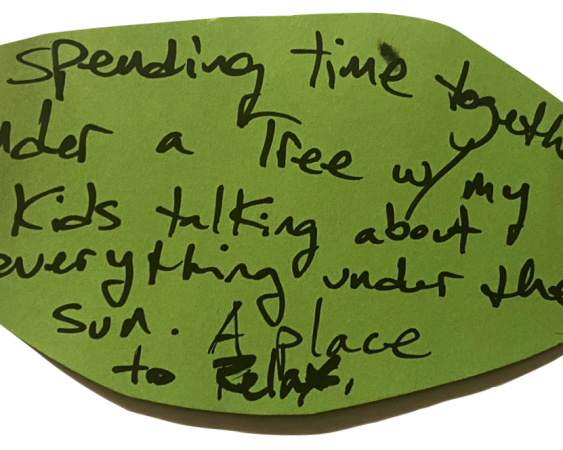 Spending time togeth
nder a Tree w/ my
Kids talking about
everything under the
sun. A place
to Relax.